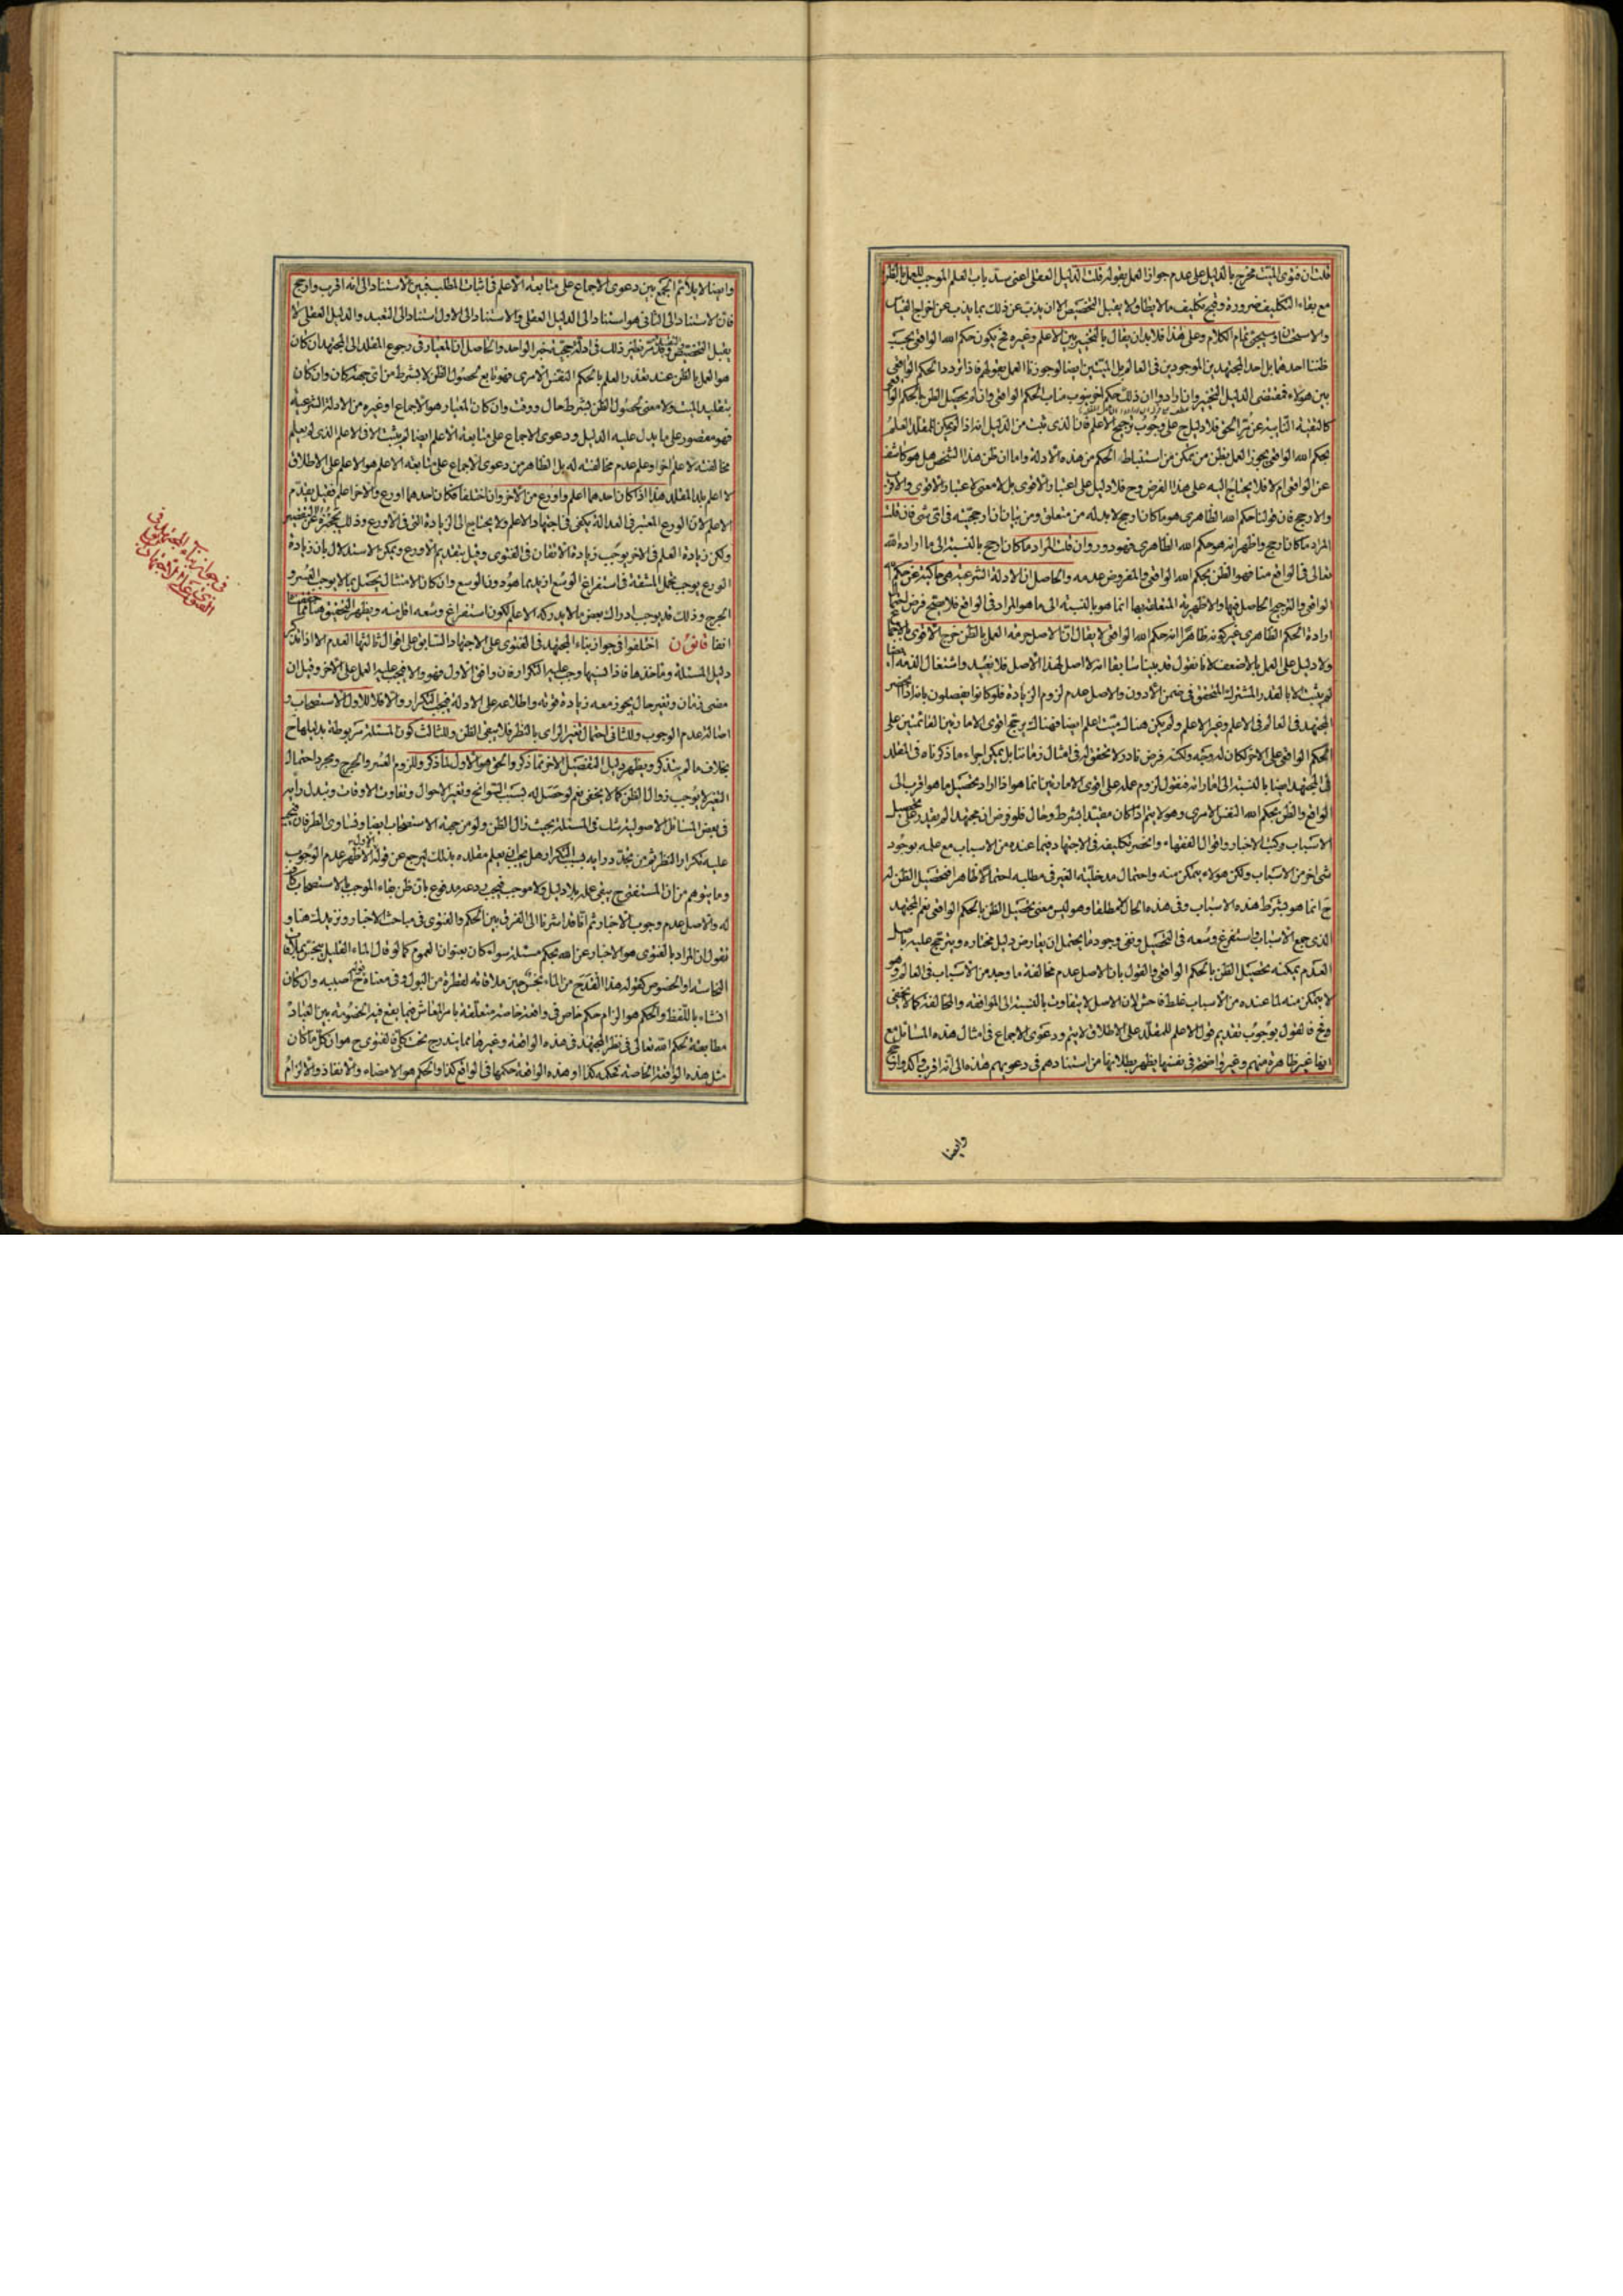 قلت ان فتوى الميّت مخرج بالدليل على عدم جواز العمل بقوله قلت الدليل العقلى اعنى سد باب العلم الموجب للعمل بالظن
مع بقاء التكليف ضرورة وقبح تكليف ما لا يطاق لا يقبل التخصيص الا ان يذب عن ذلك بما يذب عن اخراج القياس
والاستحسان وسيجئ تمام الكلام وعلى هذا فلا بد ان يقال بالتخيير بين الاعلم وغيره فح يكون حكم الله الواقعى بحسب
ظننا احدهما بل احد المجتهدين الموجودين فى العالم بل الميّتين ايضا لو جوزنا العمل بقولهم فاذا تردد الحكم الواقعى
بين هؤلاء فمقتضى الدليل التخيير وان ارادوا ان ذلك حكم اخر ينوب مناب الحكم الواقعى وان لم يحصل الظن بالحكم الواقعى
كالتقية النائبة عن مر الحق فلا دليل ح على وجوب ترجيح الاعلم فان الذى ثبت من الدليل انه اذا لم يكن للمقلد العلم
بحكم الله الواقعى يجوز العمل بظن من يتمكن من استنباط الحكم من هذه الادلة واما ان ظن هذا الشخص هل هو كاشف
عن الواقعى ام لا فلا يحتاج اليه على هذا الفرض وح فلا دليل على اعتبار الاقوى بل لا معنى لاعتبار الاقوى والاقرب
والارجح فان قولنا حكم الله الظاهرى هو ما كان ارجح لا بد له من متعلق ومن بيان ان ارجحيته فى اى شئ فان قلت
المراد ما كان ارجح واظهر انه هو حكم الله الظاهرى فهو دور وان قلت المراد ما كان ارجح بالنسبة الى ما اراده الله
تعالى فى الواقع منا فهو الظن بحكم الله الواقعى والمفروض عدمه والحاصل ان الادلة الشرعية هى حاكية عن حكم الله
الواقعى والترجيح الحاصل فيها والاظهرية المتعلقة بها انما هو بالنسبة الى ما هو المراد فى الواقع فلا يصح فرض
ارادة الحكم الظاهرى غير كونه ظاهرا انه حكم الله الواقعى لا يقال ان الاصل حرمة العمل بالظن خرج الاقوى
ولا دليل على العمل بالاضعف لانا نقول قد بينا سابقا انه لا اصل لهذا الاصل فلا نعيد واشتغال الذمة ايضا
لم يثبت الا بالقدر المشترك المتحقق فى ضمن الادون والاصل عدم لزوم الزيادة فلو كانوا يفصلون بانه اذا انحصر
المجتهد فى العالم فى الاعلم وغير الاعلم ولم يكن هناك ميّت اعلم ايضا فهناك يرجح اقوى الامارتين القائمتين على
الحكم الواقعى على الاخر لكان له وجه ولكنه فرض نادر لا تحقق له فى امثال زماننا بل يمكن اجراء ما ذكرناه فى المقلد
فى المجتهد ايضا بالنسبة الى اماراته فنقول لزوم عمله على اقوى الامارتين انما هو اذا اراد تحصيل ما هو اقرب الى
الواقع والظن بحكم الله النفس الامرى وهو لا يتم اذا كان مقيدا بشرط وحال فلو فرض ان مجتهدا لم يقدر على تحصيل
الاسباب وكتب الاخبار واقوال الفقهاء وانحصر تكليفه فى الاجتهاد فيما عنده من الاسباب مع علمه بوجود
شئ اخر من الاسباب ولكن هو لا يتمكن منه واحتمال مدخليّة الغير فى مطلبه احتمالا ظاهرا فتحصيل الظن له
ح انما هو بشرط هذه الاسباب وفى هذه الحال لا مطلقا وهو ليس معنى تحصيل الظن بالحكم الواقعى نعم المجتهد
الذى جمع الاسباب واستفرغ وسعه فى التحصيل ونفى وجود ما يحتمل ان يعارض دليل مختاره ويترجح عليه باصل
العدم يمكنه تحصيل الظن بالحكم الواقعى والقول بان الاصل عدم مخالفة ما وجد من الاسباب فى العالم وهو
لا يتمكن منه لما عنده من الاسباب غلط فاحش لان الاصل لا يتفاوت بالنسبة الى الموافقة والمخالفة كما لا يخفى
وح فالقول بوجوب تقديم قول الاعلم للمقلد على الاطلاق لا يتم ودعوى الاجماع فى امثال هذه المسائل مع
انها غير ظاهرة منهم وغير واضحة فى نفسها يظهر بطلانها من استنادهم فى دعويهم هذه الى انه اقرب واكد وارجح
وايضا
وايضا لا يلائم الجمع بين دعوى الاجماع على متابعة الاعلم فى اثبات المطلب فبين الاستناد الى انه اقرب وارجح
فان الاستناد الى الثانى هو استناد الى الدليل العقلى والاستناد الى الاول استناد الى التعبد والدليل العقلى لا
يقبل التخصيص وقد مر نظير ذلك فى ادلة حجية خبر الواحد والحاصل ان المعيار فى رجوع المقلد الى المجتهد ان كان
هو العمل بالظن عند تعذر العلم بالحكم النفس الامرى فهو تابع لحصول الظن لا بشرط من اى جهة كان وان كان
بتقليد الميّت ولا معنى لحصول الظن بشرط حال ووقت وان كان المعيار هو الاجماع او غيره من الادلة الشرعية
فهو مقصور على ما يدل عليه الدليل ودعوى الاجماع على متابعة الاعلم ايضا لم يثبت الا فى الاعلم الذى لم يعلم
مخالفته لاعلم اخر او علم عدم مخالفته له بل الظاهر من دعوى الاجماع على متابعة الاعلم هو الاعلم على الاطلاق
لا اعلم بلد المقلد هذا اذا كان احدهما اعلم واورع من الاخر وان اختلفا فكان احدهما اورع والاخر اعلم فقيل يقدم
الاعلم لان الورع المعتبر فى العدالة يكفى فى اجتهاد الاعلم ولا يحتاج الى الزيادة التى فى الاورع وذلك يحجزه عن التقصير
ولكن زيادة العلم فى الاخر يوجب زيادة الاتقان فى الفتوى وقيل بتقديم الاورع ويمكن الاستدلال بان زيادة
الورع يوجب تحمل المشقة فى استفراغ الوسع ازيد مما هو دون الوسع وان كان الامتثال يحصل بما لا يوجب العسر و
الحرج وذلك قد يوجب ادراك بعض ما لا يدركه الاعلم لكون استفراغ وسعه اقل منه ويظهر التحقيق هنا مما حققنا
انفا قانون اختلفوا فى جواز بناء المجتهد فى الفتوى على الاجتهاد السابق على اقوال ثالثها العدم الا اذا تذكر
دليل المسئلة وماخذها فاذا نسيها وجب عليه التكرار فان وافق الاول فهو والا فيجب عليه العمل على الاخر وقيل ان
مضى زمان وتغير حال يجوز معه زيادة قوته واطلاعه على الادلة فيجب التكرار والا فلا للاول الاستصحاب و
اصالة عدم الوجوب وللثانى احتمال تغير الراى بالنظر فلا يبقى الظن وللثالث كون المسئلة مربوطة بدليلها ح
بخلاف ما لم يتذكر ويظهر دليل التفصيل الاخر مما ذكر والحق هو الاول لما ذكر وللزوم العسر والحرج ومجرد احتمال
التغير لا يوجب زوال الظن كما لا يخفى نعم لو حصل له بسبب السوانح وتغير الاحوال وتفاوت الاوقات وتبدل رايه
فى بعض المسائل الاصولية شك فى المسئلة بحيث زال الظن ولو من جهة الاستصحاب ايضا وتساوى الطرفان فيجب
عليه تكرار النظر ثم من تجدد رايه بسبب التكرار هل يجب ان يعلم مقلده بذلك ليرجع عن قوله الاول الاظهر عدم الوجوب
وما يتوهم من ان المستفتى ح يبقى عمله بلا دليل ولا موجب فيجب ردعه مدفوع بان ظن بقاء الموجب بالاستصحاب كاف
له والاصل عدم وجوب الاخبار ثم انا قد اشرنا الى الفرق بين الحكم والفتوى فى مباحث الاخبار ونزيدك هنا و
نقول ان المراد بالفتوى هو الاخبار عن الله بحكم مسئلة سواء كان بعنوان العموم كما لو قال الماء القليل ينجس بملاقات
النجاسة او الخصوص كقوله هذا القدح من الماء نجس حين ملاقاته لقطرة من البول وفى معناه قوله ح اصببه وان كان
انشاء باللفظ والحكم هو الزام حكم خاص فى واقعة خاصة متعلقة بامر المعاش فيما يقع فيه الخصومة بين العباد
مطابقة لحكم الله تعالى فى نظر المجتهد فى هذه الواقعة وغيرها مما يندرج تحت كلى فالفتوى ح هو ان كل ما كان
مثل هذه الواقعة الخاصة فحكمه كذا او هذه الواقعة حكمها فى الواقع كذا والحكم هو الامضاء والانفاذ والالزام
فى جواز بناء المجتهد فى
الفتوى على الاجتهاد السابق